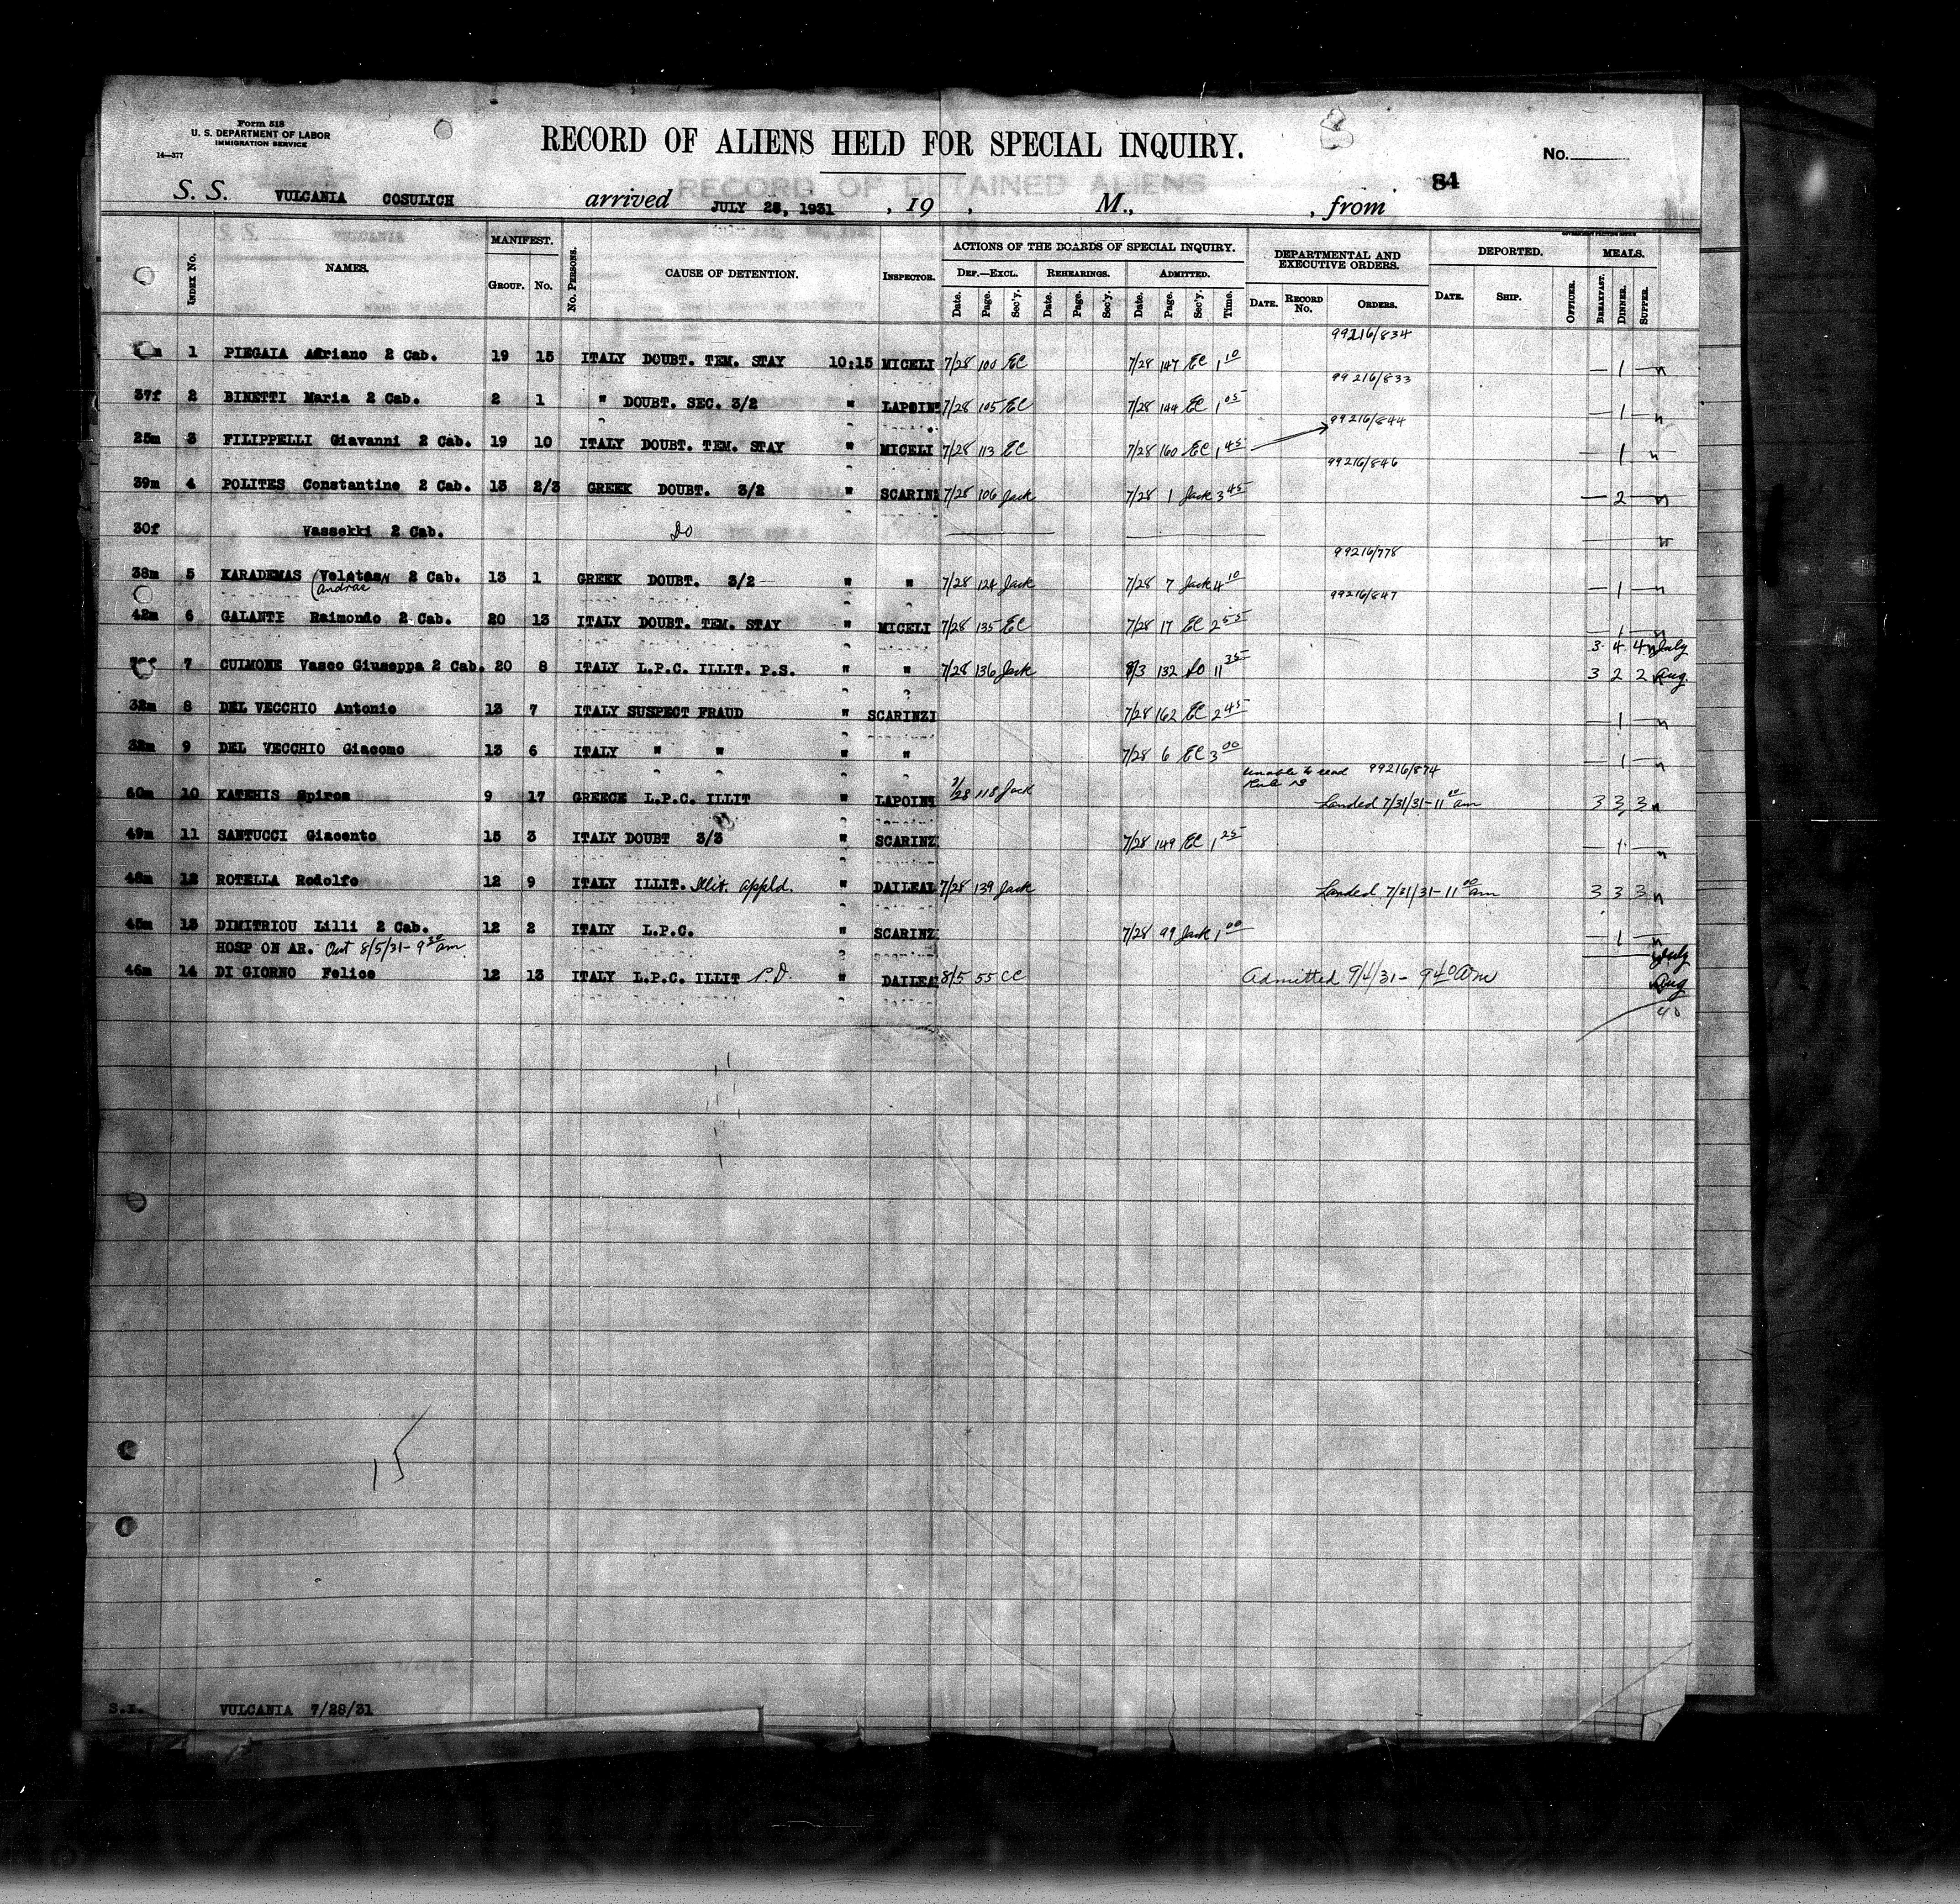 Form 518
U. S. DEPARTMENT OF LABOR
IMMIGRATION SERVICE
14—377
RECORD OF ALIENS HELD FOR SPECIAL INQUIRY.
No.
RECORD OF DETAINED ALIENS
84
S. S. VULCANIA COSULICH arrived JULY 28, 1931 , 19 , M., , from
INDEX No. NAMES. MANIFEST. GROUP. No. No. PERSONS. CAUSE OF DETENTION. INSPECTOR. ACTIONS OF THE BOARDS OF SPECIAL INQUIRY. DEPARTMENTAL AND EXECUTIVE ORDERS. DEPORTED. MEALS.
DEF.—EXCL. REHEARINGS. ADMITTED.
Date. Page. Sec'y. Date. Page. Sec'y. Date. Page. Sec'y. Time. DATE. RECORD No. ORDERS. DATE. SHIP. OFFICER. BREAKFAST. DINNER. SUPPER.
99216/834
1 PIEGAIA Adriano 2 Cab. 19 15 ITALY DOUBT. TEM. STAY 10:15 MICELI 7/28 100 EC 7/28 147 EC 1 10 — 1 — n
99216/833
37f 2 BINETTI Maria 2 Cab. 2 1 " DOUBT. SEC. 3/2 " LAPOIN 7/28 105 EC 7/28 144 EC 1 05 — 1 — n
99216/844
25m 3 FILIPPELLI Giavanni 2 Cab. 19 10 ITALY DOUBT. TEM. STAY " MICELI 7/28 113 EC 7/28 160 EC 1 45 — 1 — n
99216/846
39m 4 POLITES Constantine 2 Cab. 13 2/3 GREEK DOUBT. 3/2 " SCARINZ 7/28 106 Jack 7/28 1 Jack 3 45 — 2 — n
30f Vassekki 2 Cab. Do
99216/778
38m 5 KARADEMAS 2 Cab. 13 1 GREEK DOUBT. 3/2 " " 7/28 124 Jack 7/28 7 Jack 4 10 — 1 — n
(Andrae
99216/847
42m 6 GALANTE Raimondo 2 Cab. 20 13 ITALY DOUBT. TEM. STAY " MICELI 7/28 135 EC 7/28 17 EC 2 55 — 1 — n
3 4 4 July
7 CUIMONE Vasco Giuseppa 2 Cab. 20 8 ITALY L.P.C. ILLIT. P.S. " " 7/28 136 Jack 8/3 132 11 35 3 2 2 Aug.
32m 8 DEL VECCHIO Antonio 13 7 ITALY SUSPECT FRAUD " SCARINZI 7/28 162 EC 2 45 — 1 — n
32m 9 DEL VECCHIO Giacomo 13 6 ITALY " " " " 7/28 6 EC 3 00 — 1 — n
unable to read 99216/874
60m 10 KATEHIS Spiros 9 17 GREECE L.P.C. ILLIT " LAPOINT 7/28 118 Jack Landed 7/31/31-11 am 3 3 3 n
49m 11 SANTUCCI Giacento 15 3 ITALY DOUBT 3/3 " SCARINZ 7/28 149 EC 1 25 — 1 — n
48m 12 ROTELLA Rodolfo 12 9 ITALY ILLIT. Illit. appld. " DAILEAL 7/28 139 Jack Landed 7/31/31-11 00 am 3 3 3 n
45m 13 DIMITRIOU Lilli 2 Cab. 12 2 ITALY L.P.C. " SCARINZ 7/28 99 Jack 1 00 — 1 — n
HOSP ON AR. Out 8/5/31-9 30 am July
46m 14 DI GIORNO Felice 12 13 ITALY L.P.C. ILLIT P.D. " DAILEA 8/5 55 CC Admitted 9/4/31- 9 40 am Aug
40
15
S.I. VULCANIA 7/28/31